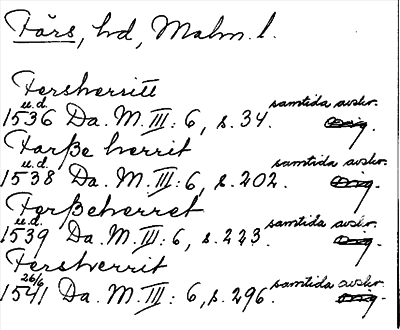 Färs, hd, Malm. l.
Fersherritt
1536 u.d. Da. M. III: 6, s. 34. samtida avskr. Orig.
Farße herrit
1538 u.d. Da. M. III: 6, s. 202. samtida avskr. Orig.
Ferßeherret
1539 u.d. Da. M. III: 6, s. 223. samtida avskr. Orig.
Fersherrit
1541 26/6 Da. M. III: 6, s. 296. samtida avskr. Orig.